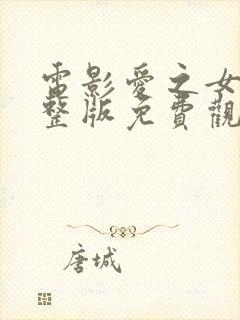 電影愛之女
整版免費觀
唐城